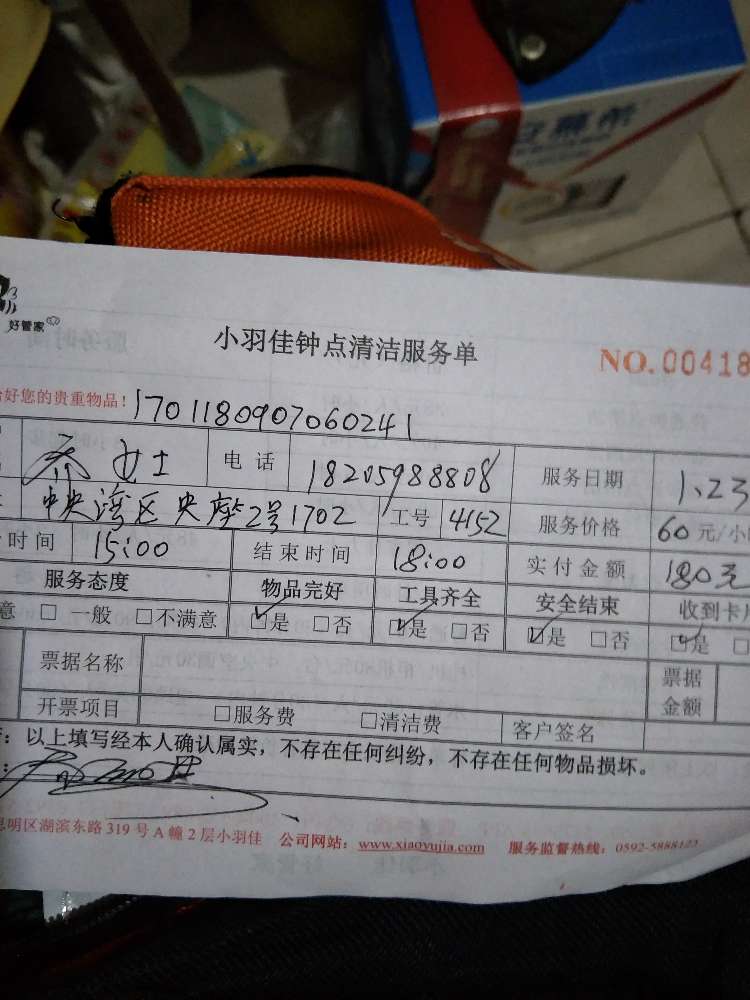 好管家
小羽佳钟点清洁服务单 NO.00418
好您的贵重物品! 1701180907060241
女士 电话 18205988808 服务日期 1.23
中央湾区央座2号1702 工号 4152 服务价格 60元/小
时间 15:00 结束时间 18:00 实付金额 180元
服务态度 物品完好 工具齐全 安全结束 收到卡片
意 □一般 □不满意 ☑是 □否 ☑是 □否 ☑是 □否 ☑是 □
票据名称 票据金额
开票项目 □服务费 □清洁费 客户签名
：以上填写经本人确认属实，不存在任何纠纷，不存在任何物品损坏。
思明区湖滨东路319号A幢2层小羽佳 公司网站：www.xiaoyujia.com 服务监督热线：0592-5888123